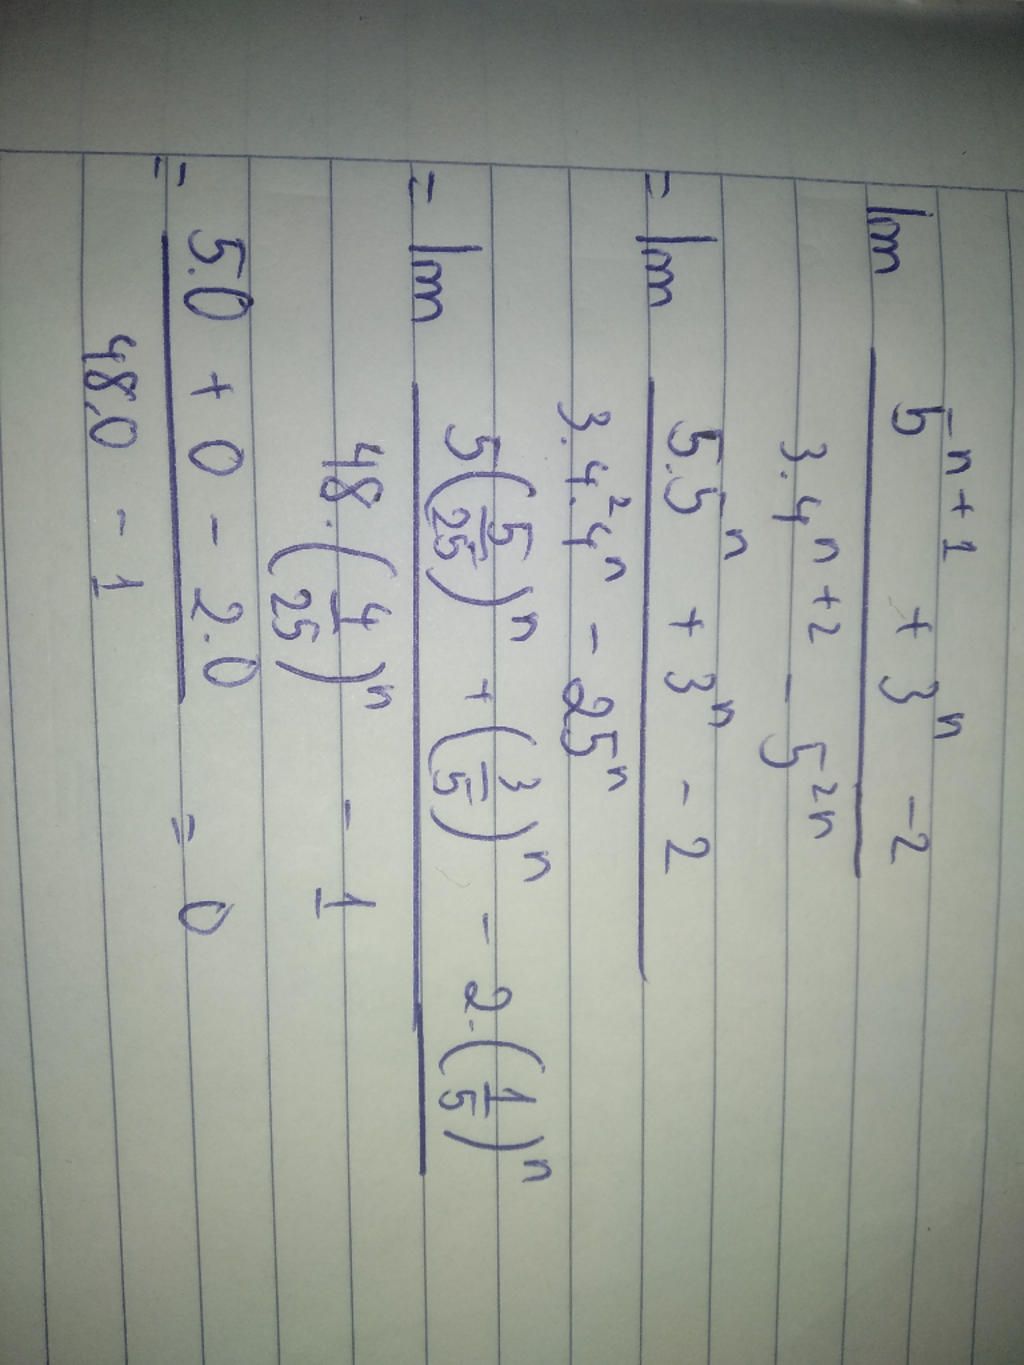 lim (5^{n+1} + 3^n - 2) / (3.4^{n+2} - 5^{2n})
= lim (5.5^n + 3^n - 2) / (3.4^2.4^n - 25^n)
= lim (5(5/25)^n + (3/5)^n - 2.(1/5)^n) / (48.(4/25)^n - 1)
= (5.0 + 0 - 2.0) / (48.0 - 1) = 0